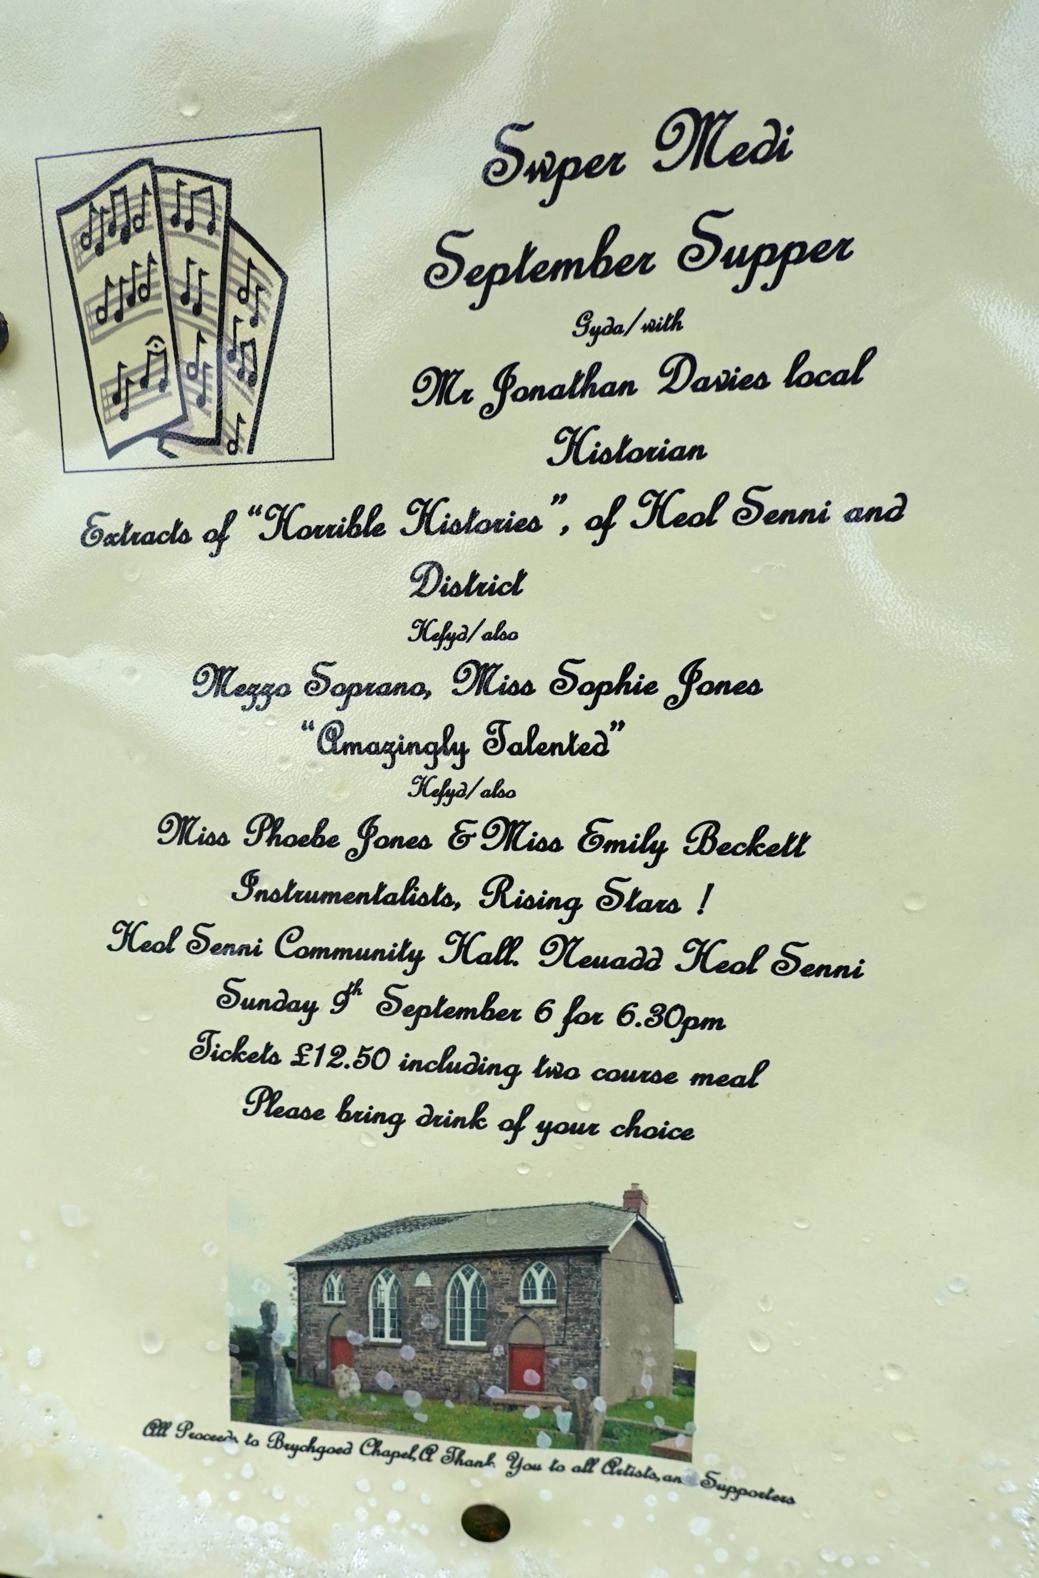 Swper Medi
September Supper
Gyda/with
Mr Jonathan Davies local
Historian
Extracts of "Horrible Histories", of Heol Senni and
District
Hefyd/also
Mezzo Soprano, Miss Sophie Jones
"Amazingly Talented"
Hefyd/also
Miss Phoebe Jones & Miss Emily Beckett
Instrumentalists, Rising Stars !
Heol Senni Community Hall. Neuadd Heol Senni
Sunday 9th September 6 for 6.30pm
Tickets £12.50 including two course meal
Please bring drink of your choice
All Proceeds to Brychgoed Chapel, A Thank You to all Artists, and Supporters